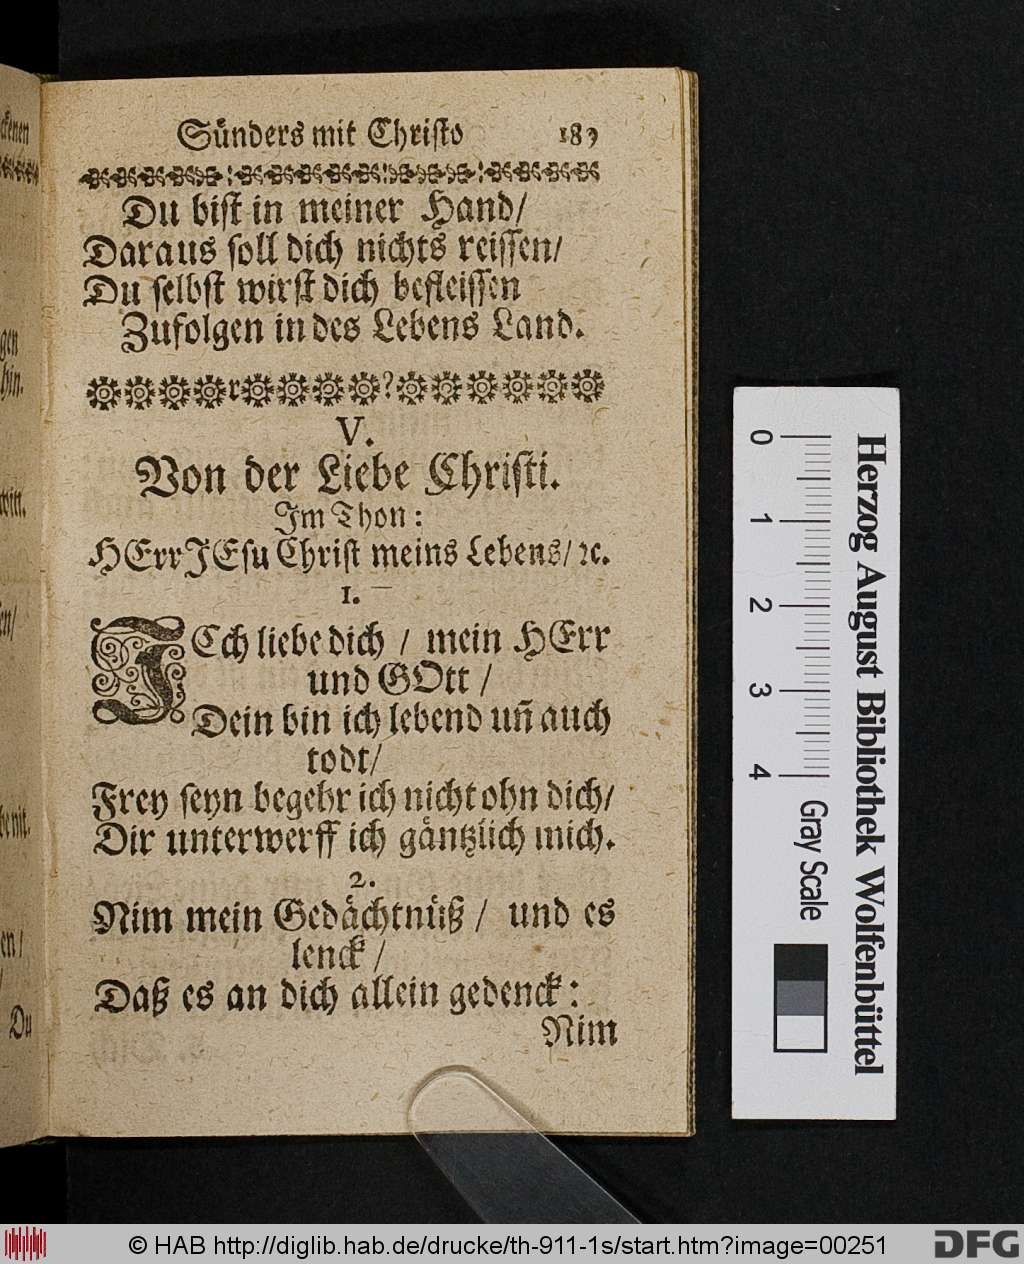 Sünders mit Christo 189
Du bist in meiner Hand/
Daraus soll dich nichts reissen/
Du selbst wirst dich befleissen
Zufolgen in des Lebens Land.
V.
Von der Liebe Christi.
Im Thon:
HErr JEsu Christ meins Lebens/ ꝛc.
1.
ICch liebe dich / mein HErr
und GOtt /
Dein bin ich lebend uñ auch
todt/
Frey seyn begehr ich nicht ohn dich/
Dir unterwerff ich gäntzlich mich.
2.
Nim mein Gedächtnüß / und es
lenck /
Daß es an dich allein gedenck:
Nim
Du
0 1 2 3 4 Gray Scale
Herzog August Bibliothek Wolfenbüttel
© HAB http://diglib.hab.de/drucke/th-911-1s/start.htm?image=00251
DFG